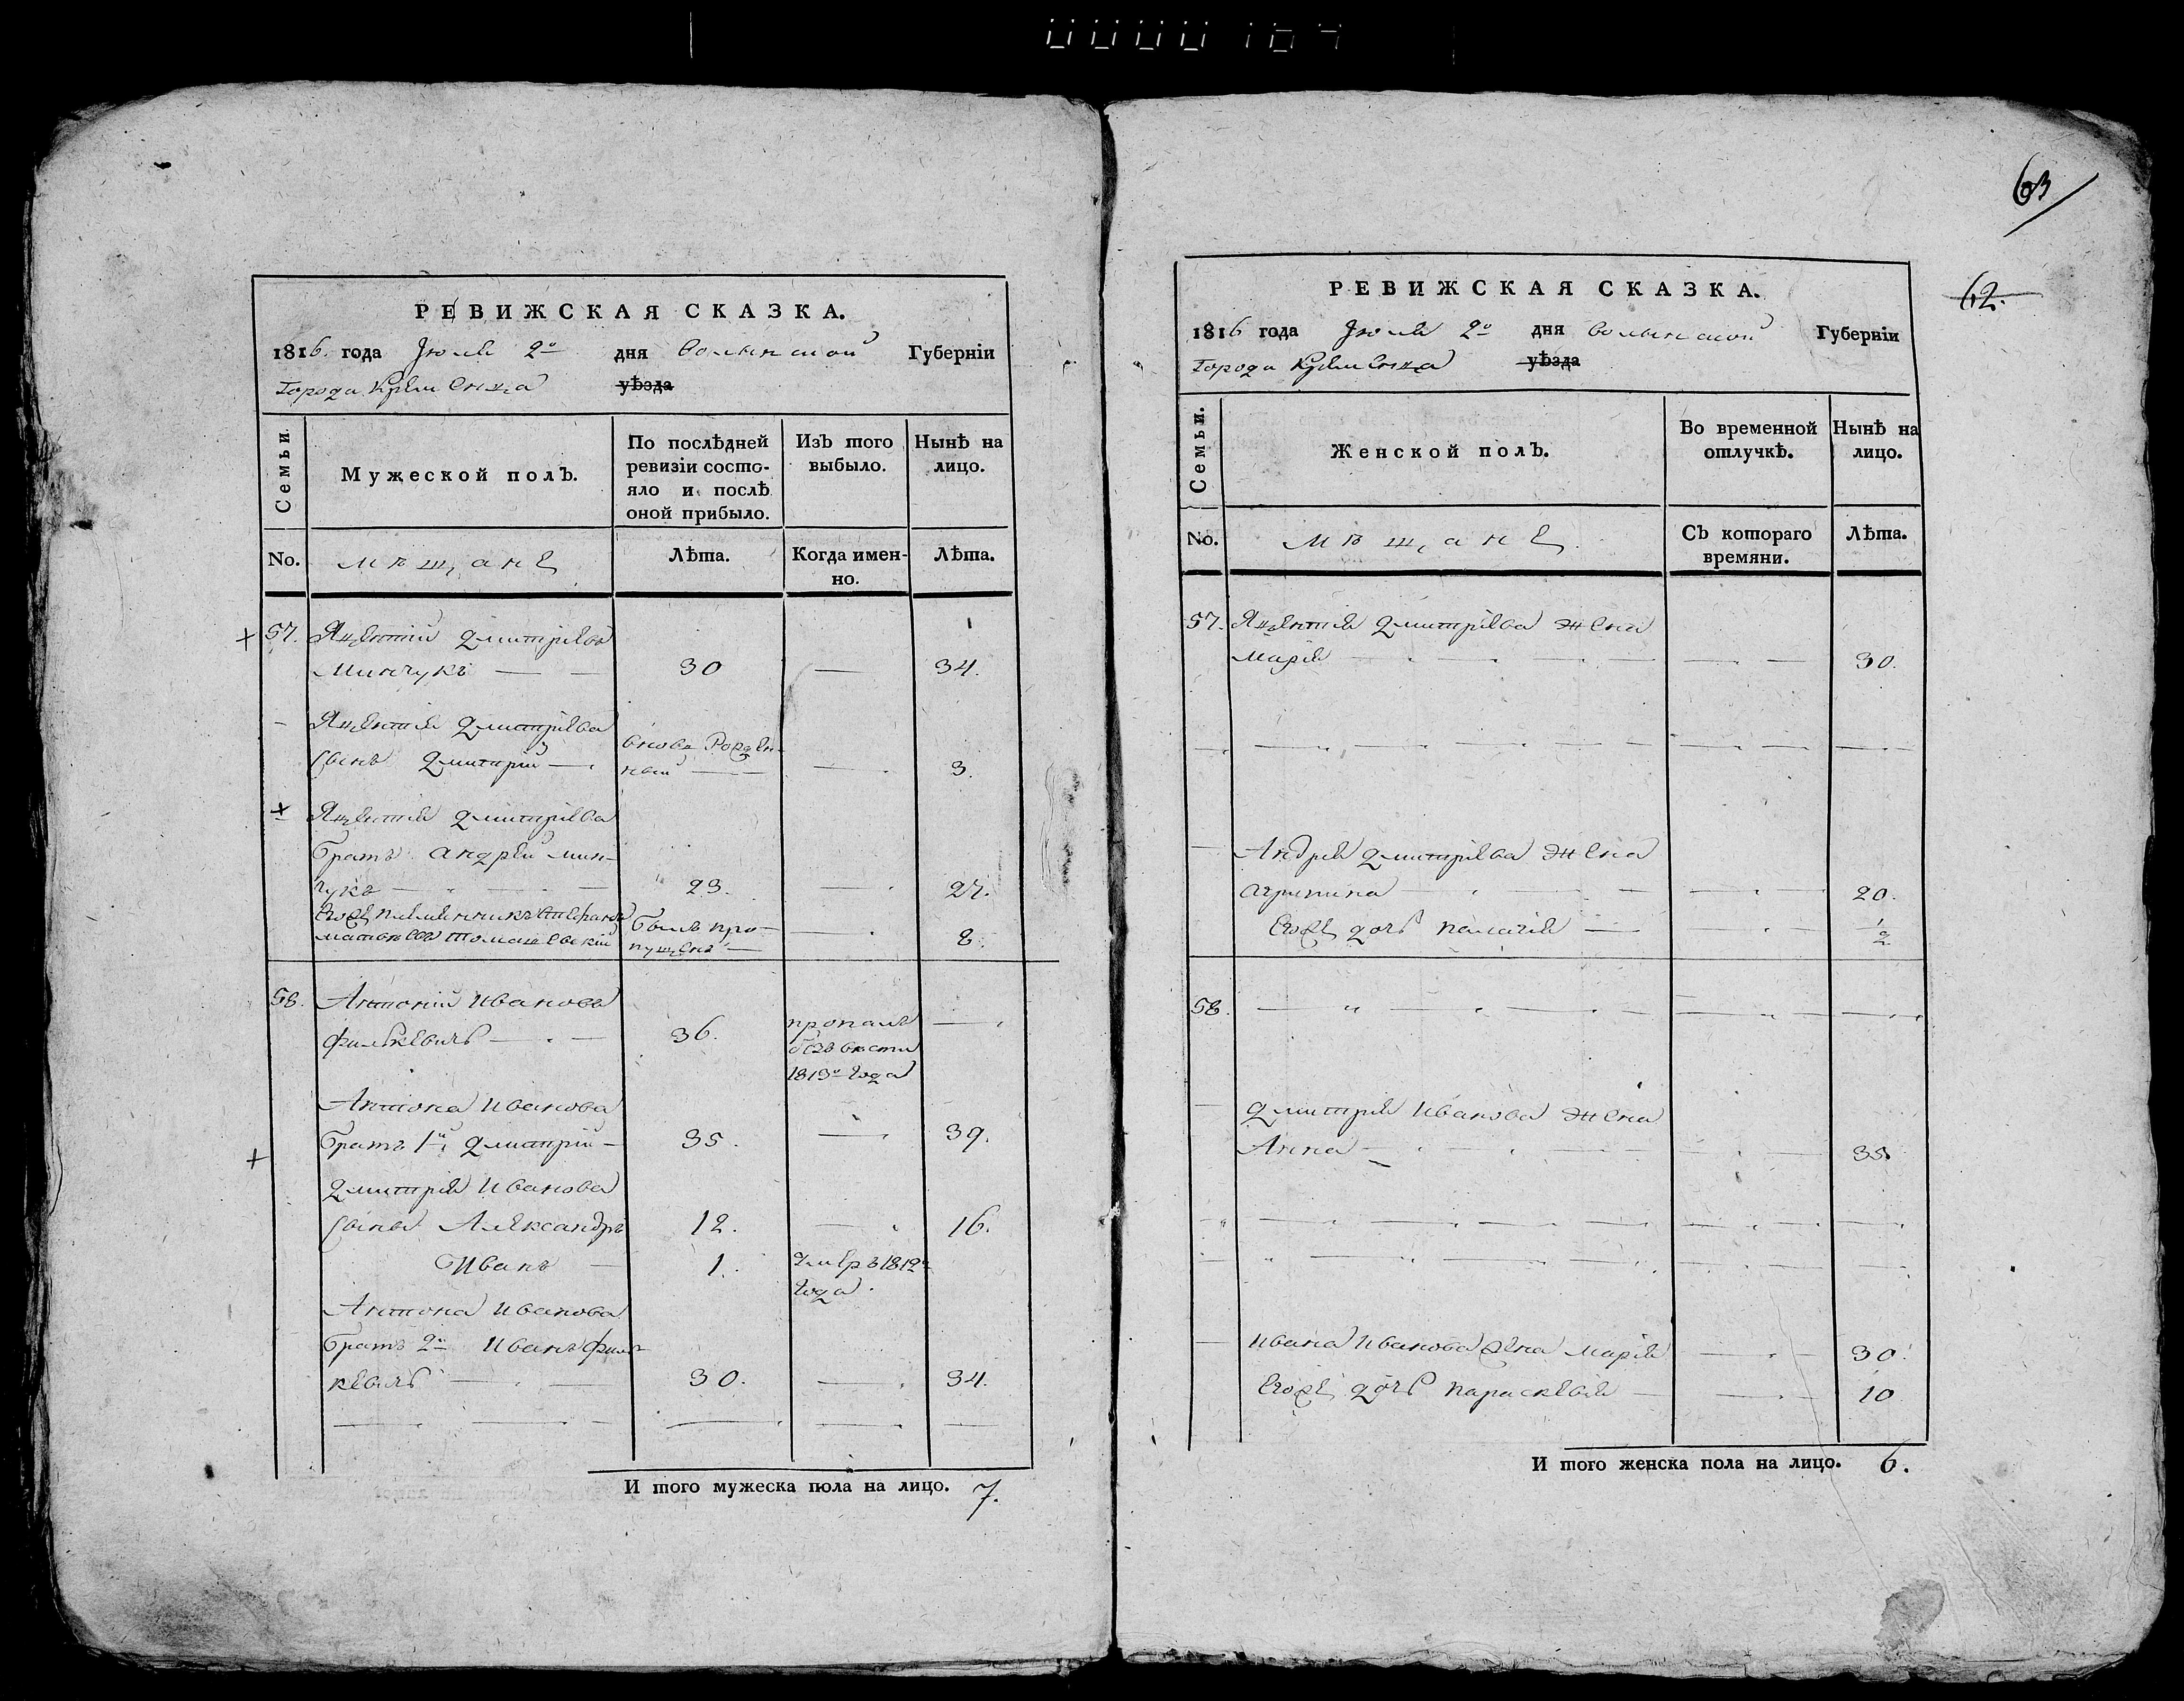 РЕВИЖСКАЯ СКАЗКА.
1816. года Июля 2º дня Волынской Губерніи
Города Кременца уѣзда
Семьи.
Мужеской полъ.
По послѣдней ревизіи состояло и послѣ оной прибыло.
Изъ того выбыло.
Нынѣ на лицо.
No.
мѣщане
Лѣта.
Когда именно.
Лѣта.
57. Яцентій Дмитріевъ
Минчукъ — — 30 — 34.
— Яцентія Дмитріева
сынъ Дмитрій — вновь рожденный — — 3.
Яцентія Дмитріева
братъ Андрей Мин-
чукъ — 23. — 27.
Егоже племянникъ Стефанъ
Матвѣевъ Томашевскій былъ пропущенъ — — 8.
58. Антоній Ивановъ
Филькевичь — 36. пропалъ безъ вѣсти 1813º года —
Антона Иванова
братъ 1й Дмитрій — 35. — 39.
Дмитрія Иванова
сыны Александръ 12. — 16.
Иванъ — 1. умеръ 1812º года.
Антона Иванова
братъ 2й Иванъ Филь-
кевичь — 30. — 34.
И того мужеска пола на лицо. 7.
63
62.
РЕВИЖСКАЯ СКАЗКА.
1816 года Июля 2º дня Волынской Губерніи
Города Кременца уѣзда
Семьи.
Женской полъ.
Во временной отлучкѣ.
Нынѣ на лицо.
No.
мѣщане.
Съ котораго времяни.
Лѣта.
57. Яцентія Дмитріева жена
Марія — — 30.
— Андрея Дмитріева жена
Агрипина — — 20.
Егоже дочь Пелагія — — 1/2
58.
— Дмитрія Иванова жена
Анна — — 35.
— Ивана Иванова жена Марія — 30.
Егоже дочь Параскевія — — 10
И того женска пола на лицо. 6.